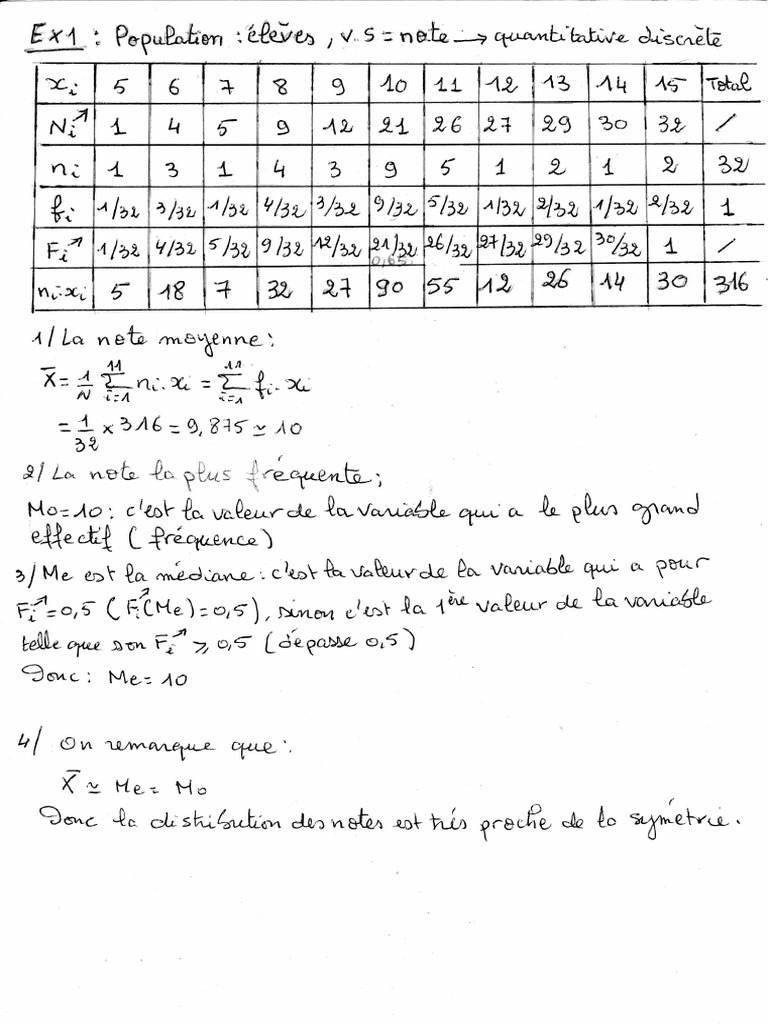 Ex1 : Population : élèves, v.s = note → quantitative discrète
xi 5 6 7 8 9 10 11 12 13 14 15 Total
Ni↗ 1 4 5 9 12 21 26 27 29 30 32 /
ni 1 3 1 4 3 9 5 1 2 1 2 32
fi 1/32 3/32 1/32 4/32 3/32 9/32 5/32 1/32 2/32 1/32 2/32 1
Fi↗ 1/32 4/32 5/32 9/32 12/32 21/32 26/32 27/32 29/32 30/32 1 /
0,65
ni.xi 5 18 7 32 27 90 55 12 26 14 30 316
1/ La note moyenne :
X̄ = 1/N Σ(i=1 → 11) ni.xi = Σ(i=1 → 11) fi.xi
= 1/32 × 316 = 9,875 ≃ 10
2/ La note la plus fréquente ;
Mo = 10 : c'est la valeur de la variable qui a le plus grand
effectif ( fréquence )
3/ Me est la médiane : c'est la valeur de la variable qui a pour
Fi↗ = 0,5 ( Fi↗(Me) = 0,5 ), sinon c'est la 1ère valeur de la variable
telle que son Fi↗ ⩾ 0,5 ( dépasse 0,5 )
Donc : Me = 10
4/ On remarque que :
X̄ ≃ Me = Mo
Donc la distribution des notes est trés proche de la symétrie.